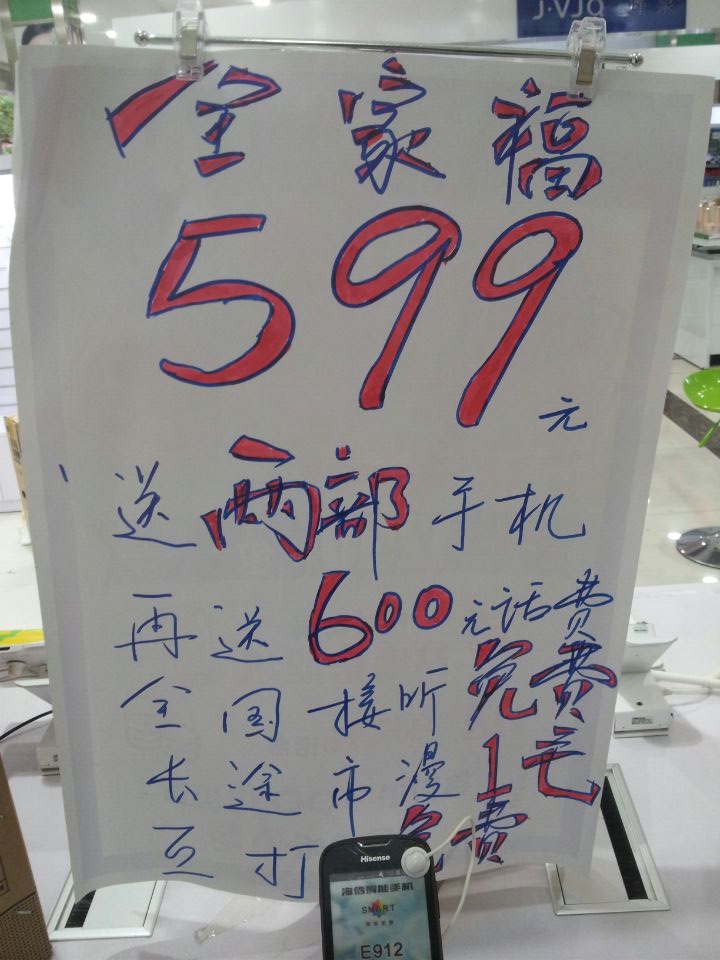 J·VJQ
全家福
599
元
送两部手机
再送600元话费
全国接听免费
长途市漫1毛
互打免费
Hisense
海信智能手机
SMART
E912